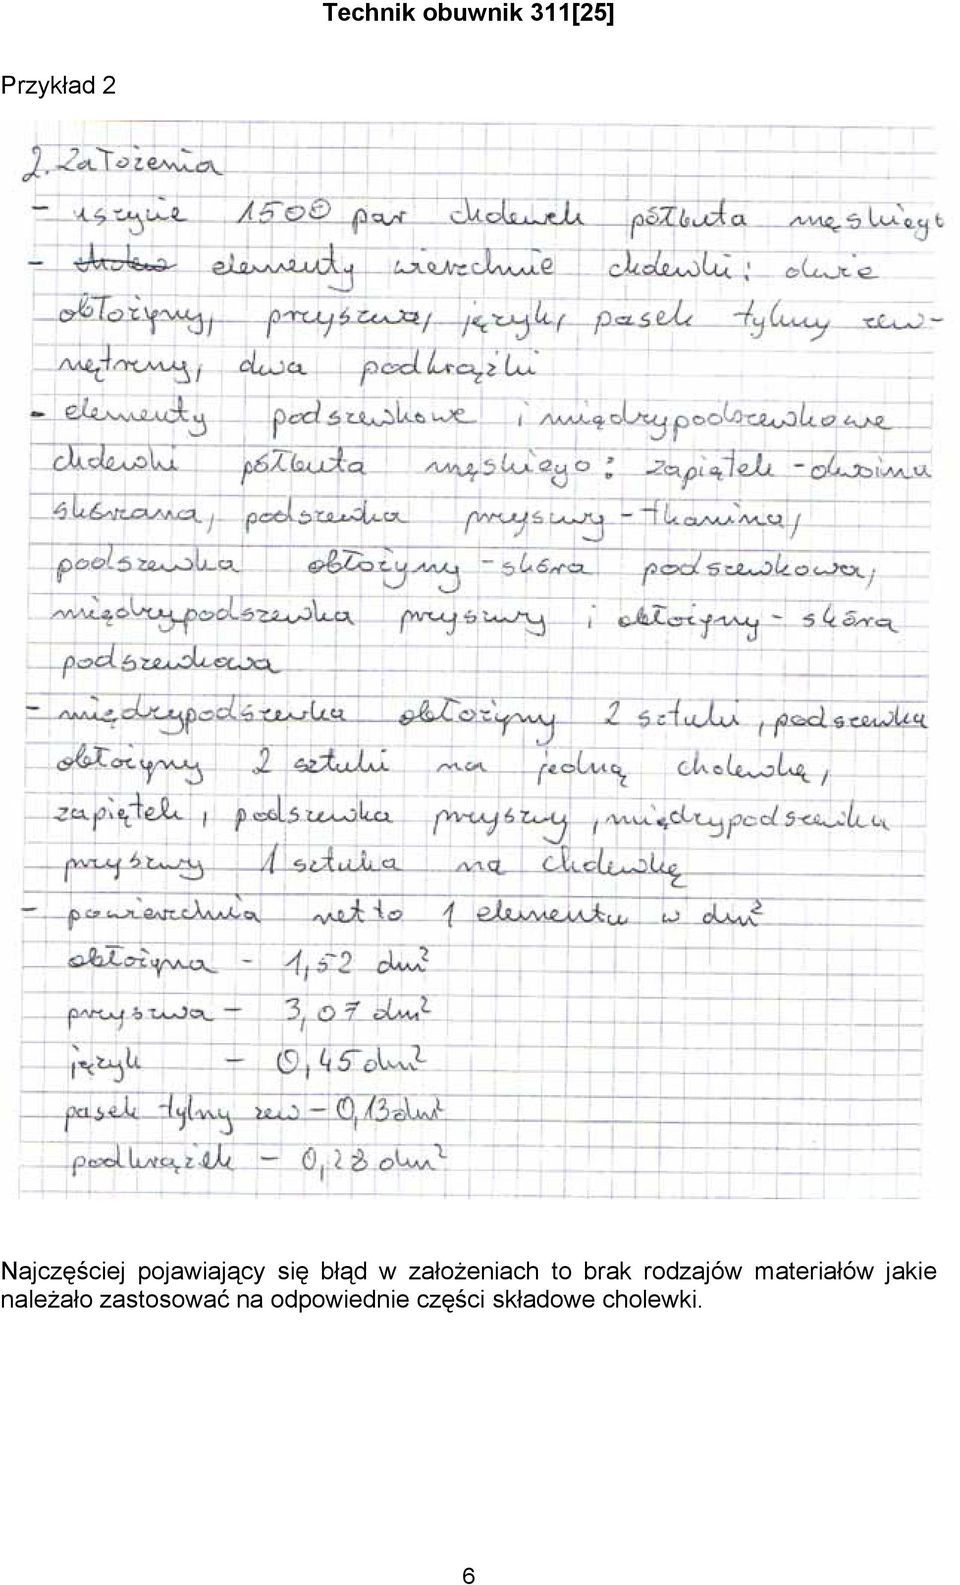 Technik obuwnik 311[25]
Przykład 2
2. Założenia
- uszycie 1500 par cholewek półbuta męskiego
- cholew elementy wierzchnie cholewki: dwie
obłożyny, przyszwa, język, pasek tylny zew-
nętrzny, dwa podkrążki
- elementy podszewkowe i międzypodszewkowe
cholewki półbuta męskiego: zapiętek - dwoina
skórzana, podszewka przyszwy - tkanina,
podszewka obłożyny - skóra podszewkowa,
międzypodszewka przyszwy i obłożyny - skóra
podszewkowa
- międzypodszewka obłożyny 2 sztuki, podszewka
obłożyny 2 sztuki na jedną cholewkę,
zapiętek, podszewka przyszwy, międzypodszewka
przyszwy 1 sztuka na cholewkę
- powierzchnia netto 1 elementu w dm²
obłożyna - 1,52 dm²
przyszwa - 3,07 dm²
język - 0,45 dm²
pasek tylny zew - 0,13 dm²
podkrążek - 0,28 dm²
Najczęściej pojawiający się błąd w założeniach to brak rodzajów materiałów jakie
należało zastosować na odpowiednie części składowe cholewki.
6